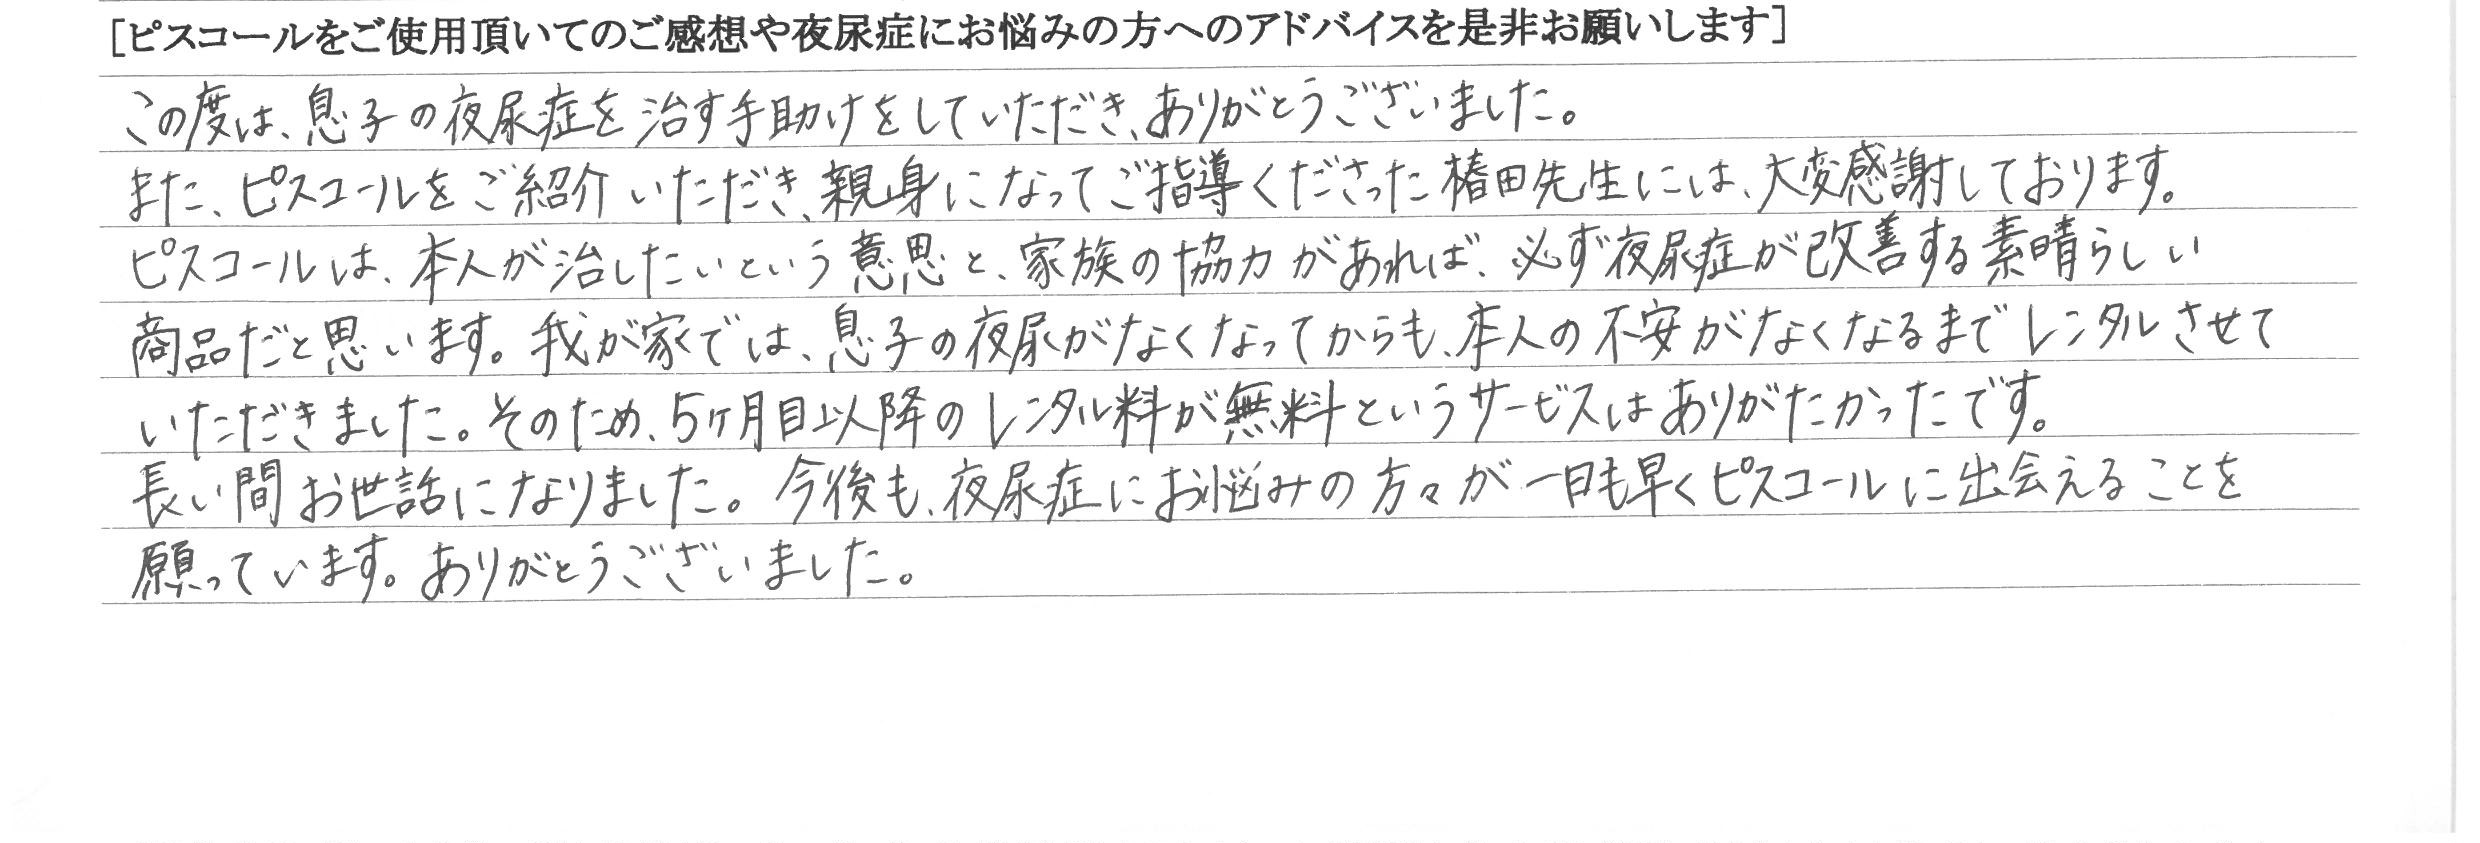 [ピスコールをご使用頂いてのご感想や夜尿症にお悩みの方へのアドバイスを是非お願いします]
この度は、息子の夜尿症を治す手助けをしていただき、ありがとうございました。
また、ピスコールをご紹介いただき、親身になってご指導くださった椿田先生には、大変感謝しております。
ピスコールは、本人が治したいという意思と、家族の協力があれば、必ず夜尿症が改善する素晴らしい
商品だと思います。我が家では、息子の夜尿がなくなってからも、本人の不安がなくなるまでレンタルさせて
いただきました。そのため、5ヶ月目以降のレンタル料が無料というサービスはありがたかったです。
長い間お世話になりました。今後も、夜尿症にお悩みの方々が一日も早くピスコールに出会えることを
願っています。ありがとうございました。